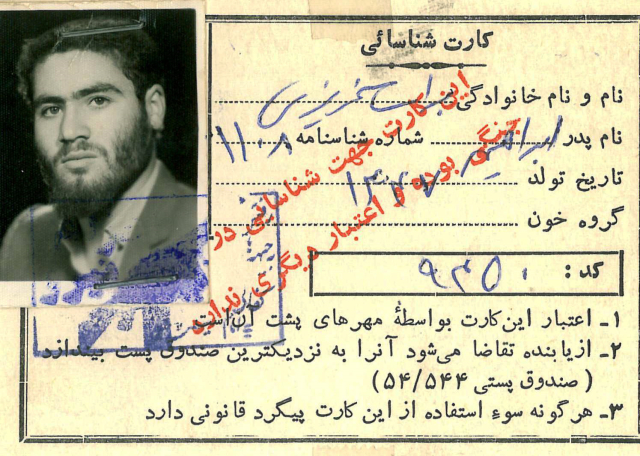 کارت شناسائی
نام و نام خانوادگی
نام پدر ابراهیم شماره شناسنامه ۱۱۰۸
تاریخ تولد ۱۳۴۷
گروه خون
کد : ۹۳۵۰
۱ـ اعتبار این‌کارت بواسطهٔ مهرهای پشت آن‌است
۲ـ ازیابنده تقاضا می‌شود آنرا به نزدیکترین صندوق پست بیندازد
( صندوق پستی ۵۴/۵۴۴)
۳ـ هرگونه سوء استفاده از این کارت پیگرد قانونی دارد
این کارت جهت شناسائی در
جنگی بوده و اعتبار دیگری ندارد